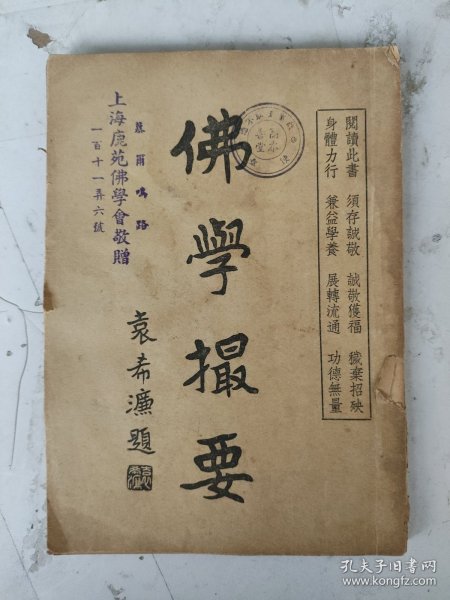 閱讀此書 須存誠敬 誠敬獲福 穢棄招殃
身體力行 兼益學養 展轉流通 功德無量
佛學撮要
袁希濂題
慕爾鳴路
上海鹿苑佛學會敬贈
一百十一弄六號
孔夫子旧书网
www.kongfz.com